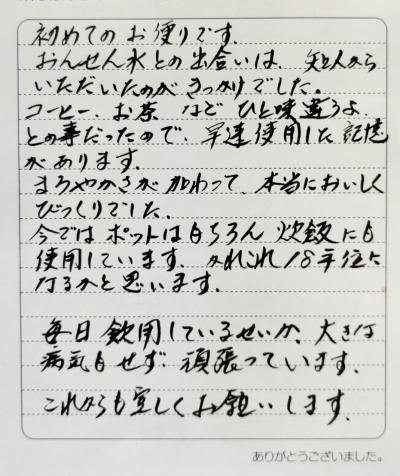 初めてのお便りです。
おんせん水との出合いは、知人から
いただいたのがきっかけでした。
コーヒー、お茶 などひと味違うよ、
との事だったので、早速使用した記憶
があります。
まろやかさが加わって、本当においしく
びっくりでした。
今ではポットはもちろん 炊飯にも
使用しています。かれこれ18年位に
なるかと思います。
毎日飲用しているせいか、大きな
病気もせず 頑張っています。
これからも宜しくお願いします。
ありがとうございました。